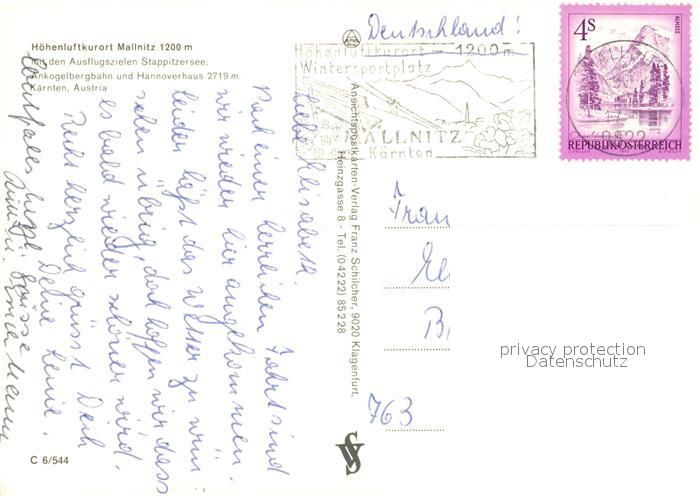 Höhenluftkurort Mallnitz 1200 m
mit den Ausflugszielen Stappitzersee,
Ankogelbergbahn und Hannoverhaus 2719 m.
Kärnten, Austria
Liebe Elisabeth.
Nach einer herrlichen Fahrt sind
wir wieder hier angekommen.
Leider läßt das Wetter zu wün-
schen übrig, doch hoffen wir dass
es bald wieder schöner wird.
Recht herzlich grüsst Dich
Deine
Ebenfalls herzl. Grüsse
C 6/544
Ansichtspostkarten-Verlag Franz Schilcher, 9020 Klagenfurt,
Heinzgasse 8 - Tel. (04222) 85228
Deutschland!
Höhenluftkurort - 1200m
Wintersportplatz
MALLNITZ
Kärnten
4S
ALMSEE
REPUBLIK ÖSTERREICH
9822
Frau
El
B
763
privacy protection
Datenschutz